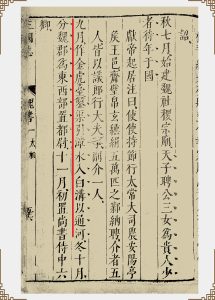 詔
秋七月始建魏社稷宗廟天子聘公三女為貴人少
者待年於國
獻帝起居注曰使使持節行太常大司農安陽亭
侯王邑齎璧帛玄纁絹五萬匹之鄴納聘介者五
人皆以議郎行大夫事副介一人
九月作金虎臺鑿渠引漳水入白溝以通河冬十月
分魏郡為東西部置都尉十一月初置尚書侍中六
卿
魏書一